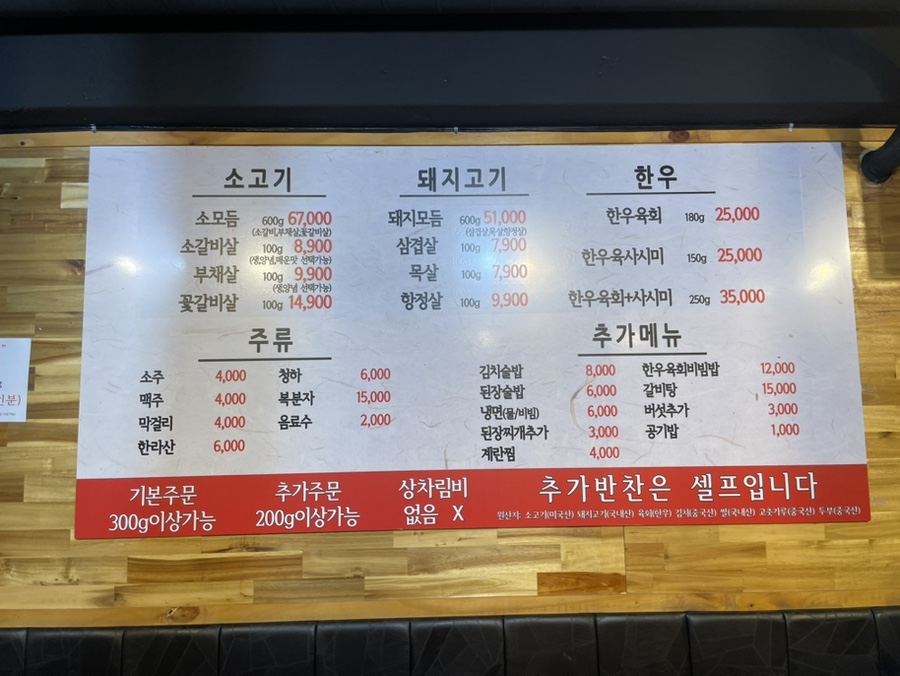 소고기
소모듬 600g 67,000
(소갈비,부채살,꽃갈비살)
소갈비살 100g 8,900
(생,양념,매운맛 선택가능)
부채살 100g 9,900
(생,양념 선택가능)
꽃갈비살 100g 14,900
돼지고기
돼지모듬 600g 51,000
(삼겹살,목살,항정살)
삼겹살 100g 7,900
목살 100g 7,900
항정살 100g 9,900
한우
한우육회 180g 25,000
한우육사시미 150g 25,000
한우육회+사시미 250g 35,000
주류
소주 4,000 청하 6,000
맥주 4,000 복분자 15,000
막걸리 4,000 음료수 2,000
한라산 6,000
추가메뉴
김치술밥 8,000 한우육회비빔밥 12,000
된장술밥 6,000 갈비탕 15,000
냉면(물/비빔) 6,000 버섯추가 3,000
된장찌개추가 3,000 공기밥 1,000
계란찜 4,000
기본주문
300g이상가능
추가주문
200g이상가능
상차림비
없음 X
추가반찬은 셀프입니다
원산지: 소고기(미국산) 돼지고기(국내산) 육회(한우) 김치(중국산) 쌀(국내산) 고춧가루(중국산) 두부(중국산)